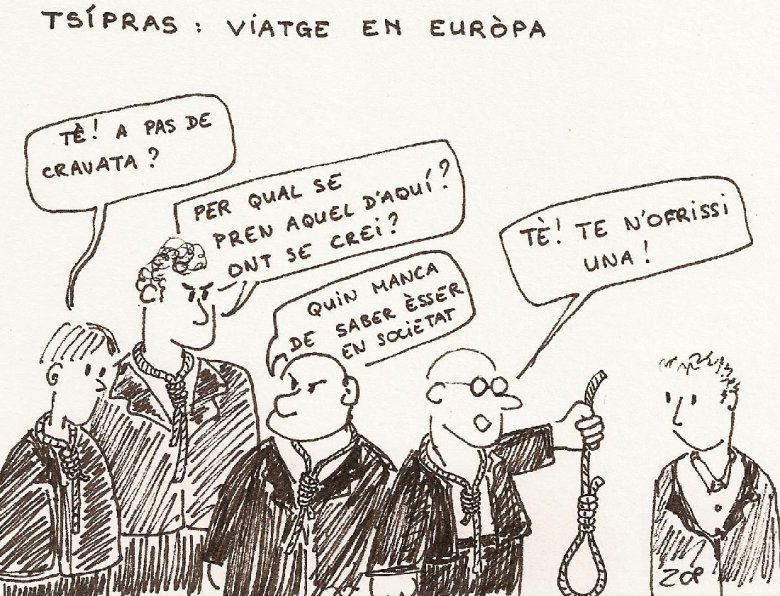 TSÍPRAS : VIATGE EN EURÒPA
TÈ! A PAS DE
CRAVATA?
PER QUAL SE
PREN AQUEL D'AQUÍ?
ONT SE CREI?
QUIN MANCA
DE SABER ÈSSER
EN SOCIETAT
TÈ! TE N'OFRISSI
UNA!
ZOP